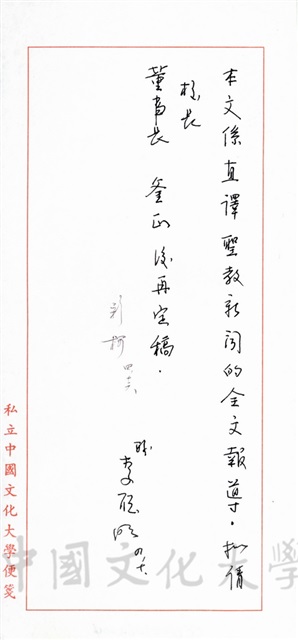 本文係直譯聖教新聞的全文報導。擬倩
校長
董事長 釜正後再定稿。
職
李聰明
私立中國文化大學便箋
中國文化大學